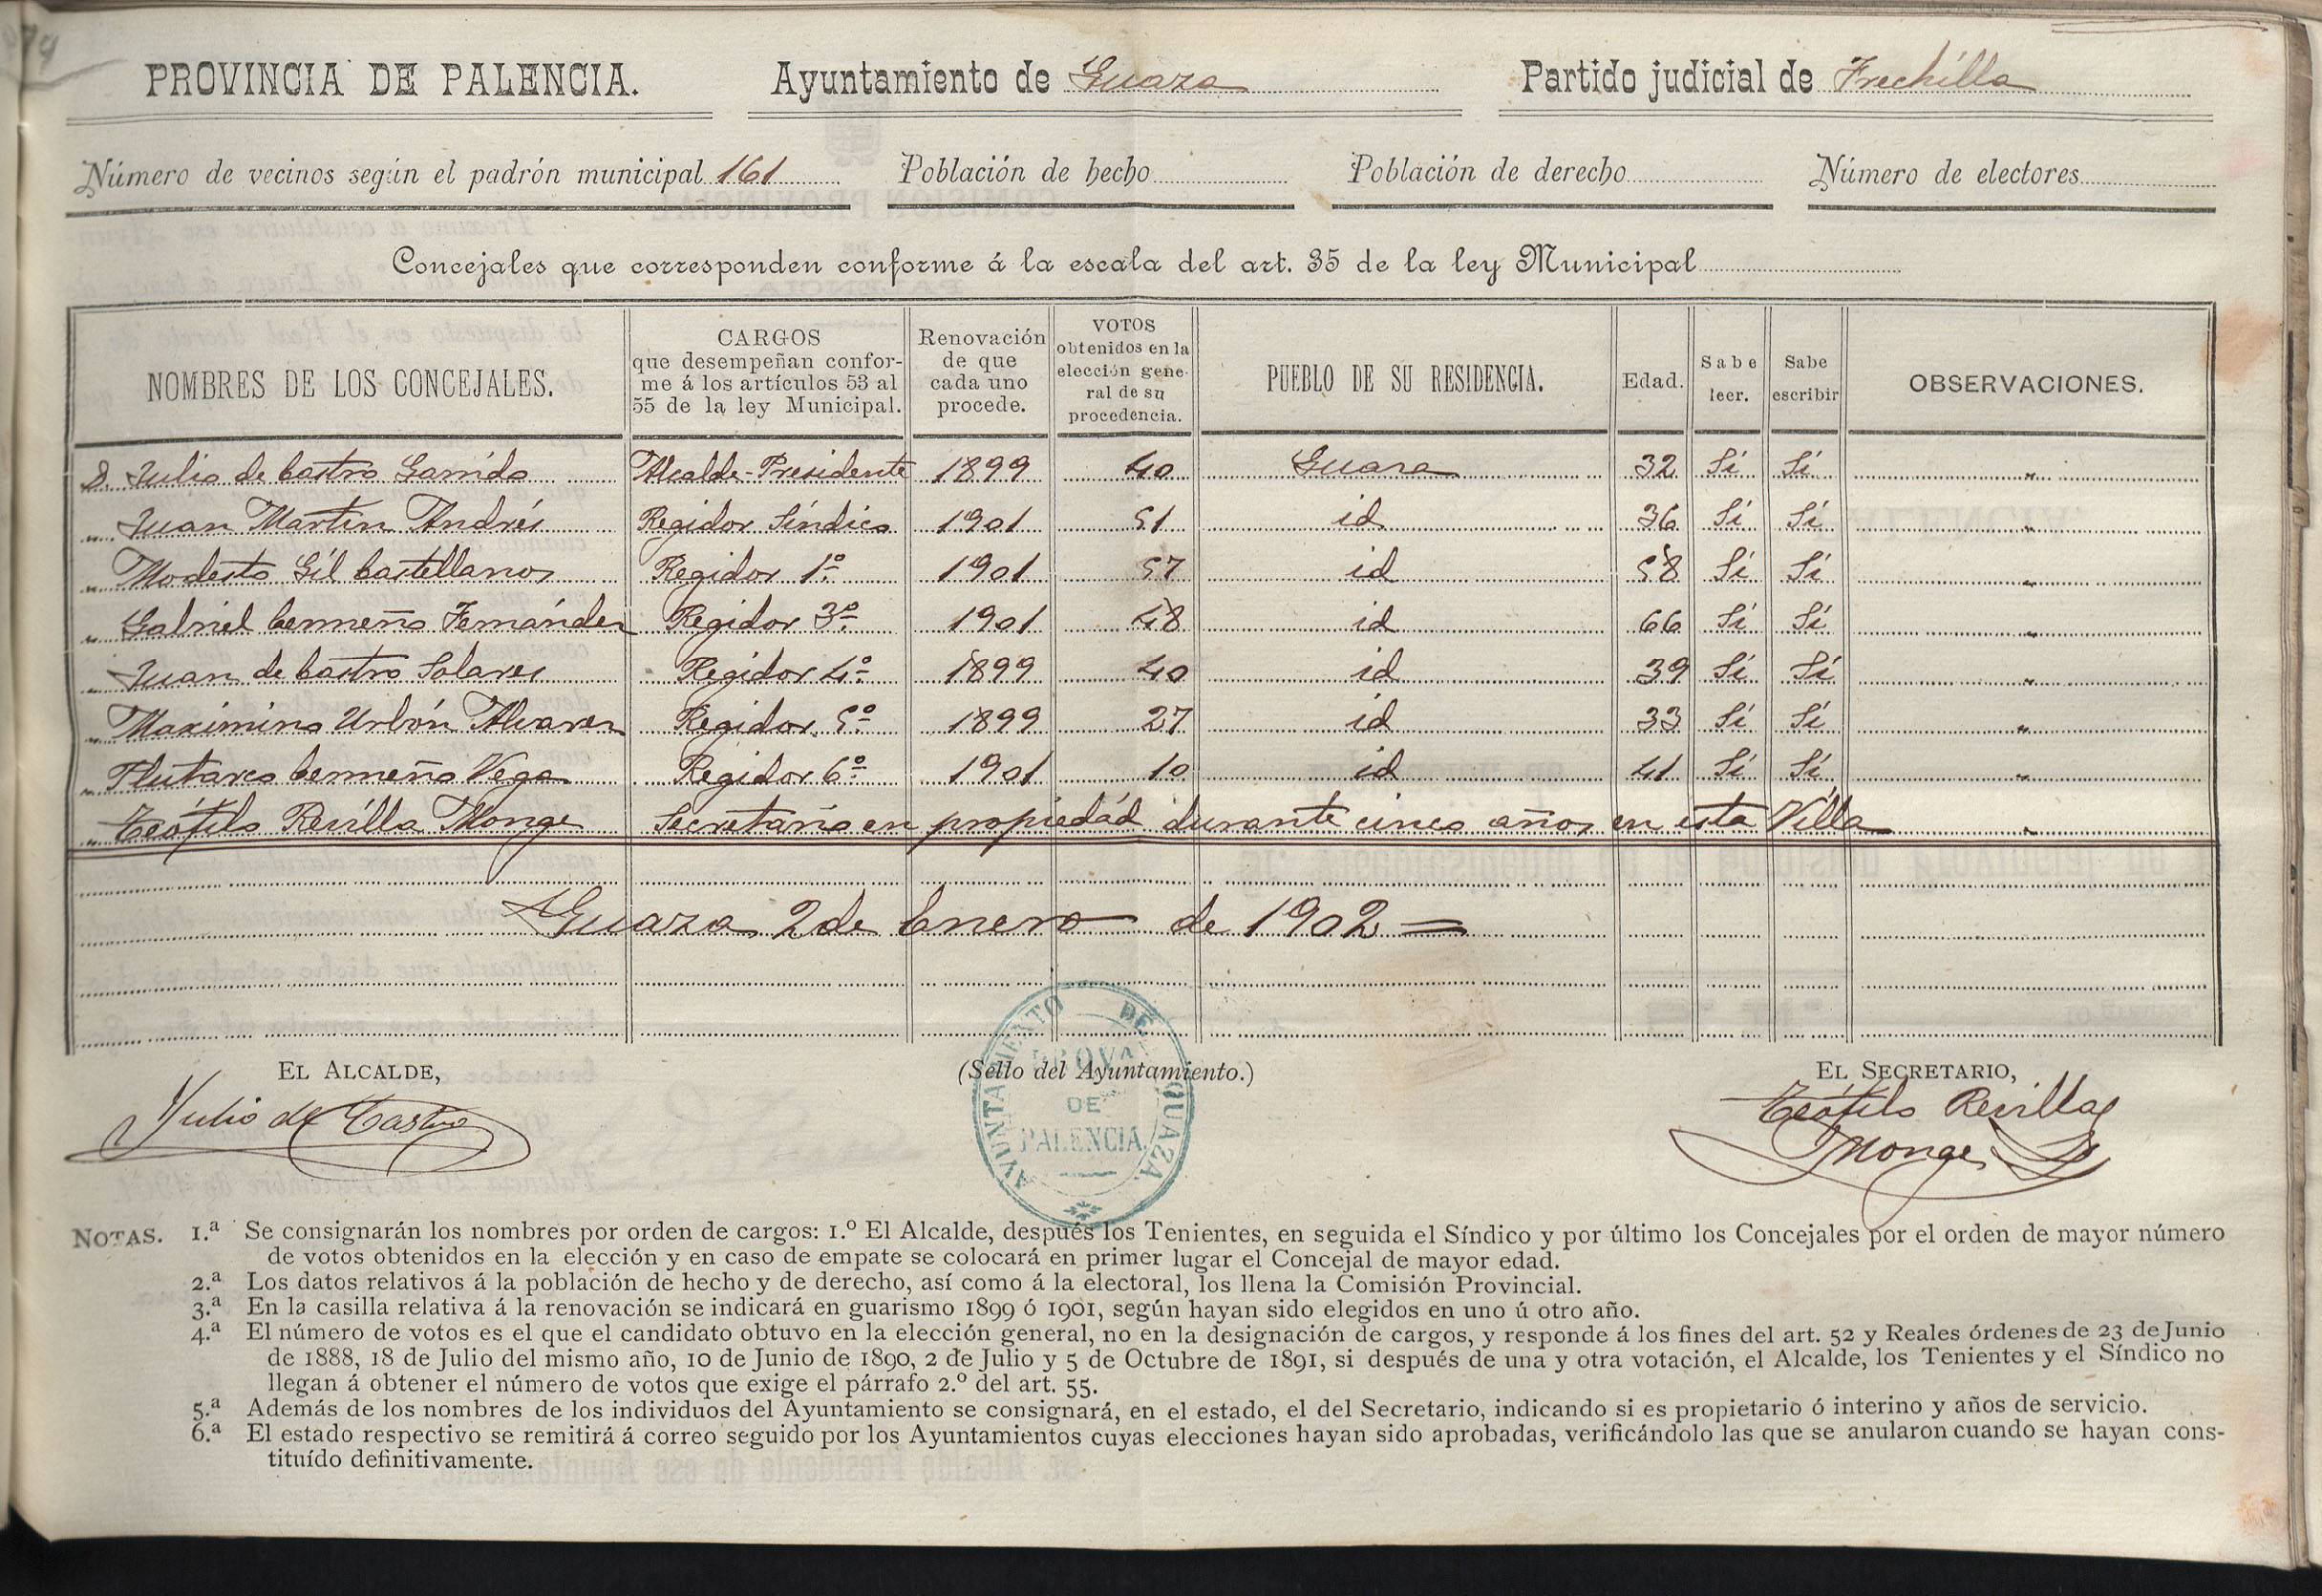 PROVINCIA DE PALENCIA. Ayuntamiento de Guaza Partido judicial de Frechilla
Número de vecinos según el padrón municipal 161 Población de hecho Población de derecho Número de electores
Concejales que corresponden conforme á la escala del art. 35 de la ley Municipal
NOMBRES DE LOS CONCEJALES. CARGOS que desempeñan conforme á los artículos 53 al 55 de la ley Municipal. Renovación de que cada uno procede. VOTOS obtenidos en la elección general de su procedencia. PUEBLO DE SU RESIDENCIA. Edad. Sabe leer. Sabe escribir OBSERVACIONES.
D. Julio de Castro Garrido Alcalde-Presidente 1899 40 Guaza 32 Sí Sí "
" Juan Martín Andrés Regidor Síndico 1901 51 id 36 Sí Sí "
" Modesto Gil Castellanos Regidor 1º 1901 57 id 58 Sí Sí "
" Gabriel Cermeño Fernández Regidor 3º 1901 48 id 66 Sí Sí "
" Juan de Castro Solares Regidor 4º 1899 40 id 39 Sí Sí "
" Maximino Urbón Alvarez Regidor 5º 1899 27 id 33 Sí Sí "
" Plutarco Cermeño Vega Regidor 6º 1901 10 id 41 Sí Sí "
" Teófilo Revilla Monge Secretario en propiedád durante cinco años en esta Villa "
Guaza 2 de Enero de 1902 =
EL ALCALDE, (Sello del Ayuntamiento.) EL SECRETARIO,
Julio de Castro
AYUNTAMIENTO DE GUAZA
PROVª
DE
PALENCIA
Teófilo Revilla
Monge
NOTAS. 1.ª Se consignarán los nombres por orden de cargos: 1.º El Alcalde, después los Tenientes, en seguida el Síndico y por último los Concejales por el orden de mayor número
de votos obtenidos en la elección y en caso de empate se colocará en primer lugar el Concejal de mayor edad.
2.ª Los datos relativos á la población de hecho y de derecho, así como á la electoral, los llena la Comisión Provincial.
3.ª En la casilla relativa á la renovación se indicará en guarismo 1899 ó 1901, según hayan sido elegidos en uno ú otro año.
4.ª El número de votos es el que el candidato obtuvo en la elección general, no en la designación de cargos, y responde á los fines del art. 52 y Reales órdenes de 23 de Junio
de 1888, 18 de Julio del mismo año, 10 de Junio de 1890, 2 de Julio y 5 de Octubre de 1891, si después de una y otra votación, el Alcalde, los Tenientes y el Síndico no
llegan á obtener el número de votos que exige el párrafo 2.º del art. 55.
5.ª Además de los nombres de los individuos del Ayuntamiento se consignará, en el estado, el del Secretario, indicando si es propietario ó interino y años de servicio.
6.ª El estado respectivo se remitirá á correo seguido por los Ayuntamientos cuyas elecciones hayan sido aprobadas, verificándolo las que se anularon cuando se hayan cons-
tituído definitivamente.